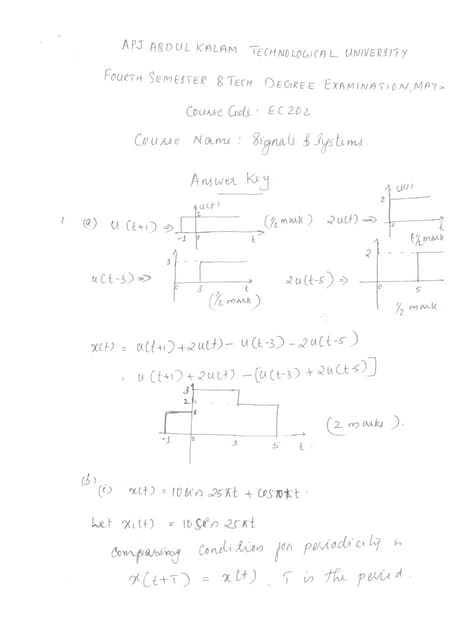 APJ ABDUL KALAM TECHNOLOGICAL UNIVERSITY
FOURTH SEMESTER B TECH DEGREE EXAMINATION, MAY
Course Code: EC202
Course Name: Signals & Systems.
Answer Key
1 (a) u(t+1) ⇒ u(t) 1 -1 0 t (1/2 mark) 2u(t) ⇒ 2 u(t) 0 t (1/2 mark
u(t-3) ⇒ 1 0 3 t (1/2 mark) 2u(t-5) ⇒ 2 0 5 t 1/2 mark
x(t) = u(t+1)+2u(t)- u(t-3)-2u(t-5)
= u(t+1)+2u(t) - [u(t-3) + 2u(t-5)]
3 2 1 -1 0 3 5 t (2 marks).
(b)
(i) x(t) = 10 sin 25πt + cos10πt.
Let x₁(t) = 10 sin 25πt
comparing condition for periodicity is
x(t+T) = x(t), T is the period.